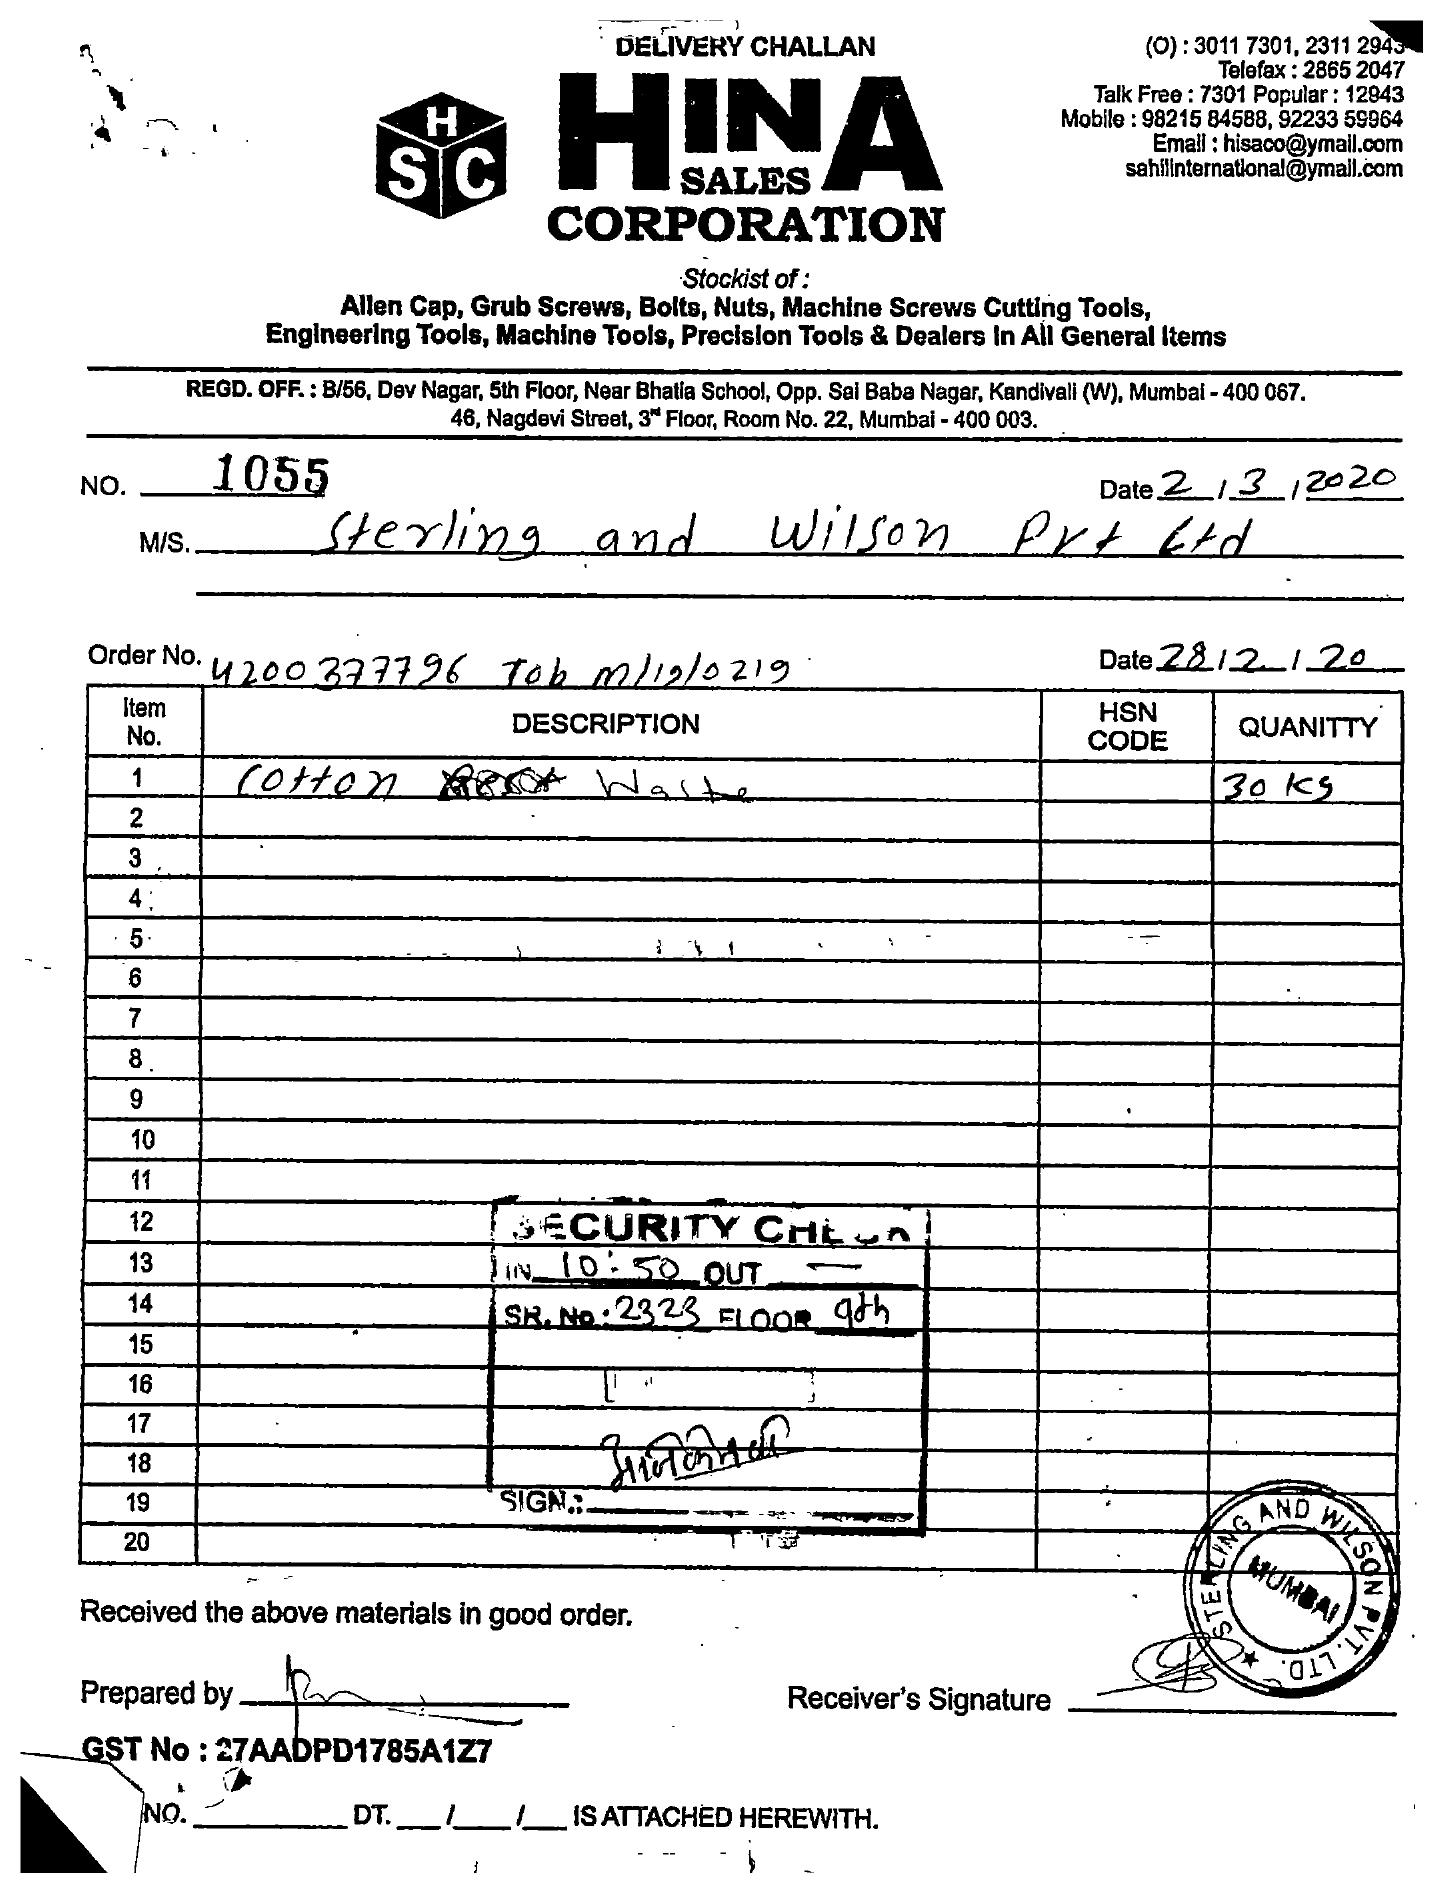 DELIVERY CHALLAN
(O) : 3011 7301, 2311 2943
Telefax : 2865 2047
Talk Free : 7301 Popular : 12943
Mobile : 98215 84588, 92233 59964
Email : hisaco@ymail.com
sahilinternational@ymail.com
H S C
HINA
SALES
CORPORATION
Stockist of :
Allen Cap, Grub Screws, Bolts, Nuts, Machine Screws Cutting Tools,
Engineering Tools, Machine Tools, Precision Tools & Dealers In All General Items
REGD. OFF. : B/56, Dev Nagar, 5th Floor, Near Bhatia School, Opp. Sai Baba Nagar, Kandivali (W), Mumbai - 400 067.
46, Nagdevi Street, 3rd Floor, Room No. 22, Mumbai - 400 003.
NO. 1055 Date 2 / 3 / 2020
M/S. Sterling and Wilson Pvt Ltd
Order No. 4200377796 Tob m/19/0219 Date 28/2/20
Item No. DESCRIPTION HSN CODE QUANITTY
1 Cotton Waste 30 KG
2
3
4
5
6
7
8
9
10
11
12
13
14
15
16
17
18
19
20
SECURITY CHECK
IN 10:50 OUT —
SR. No: 2323 FLOOR 9th
SIGN.:
STERLING AND WILSON PVT. LTD.
MUMBAI
Received the above materials in good order.
Prepared by
Receiver's Signature
GST No : 27AADPD1785A1Z7
NO. DT. __/__/__ IS ATTACHED HEREWITH.